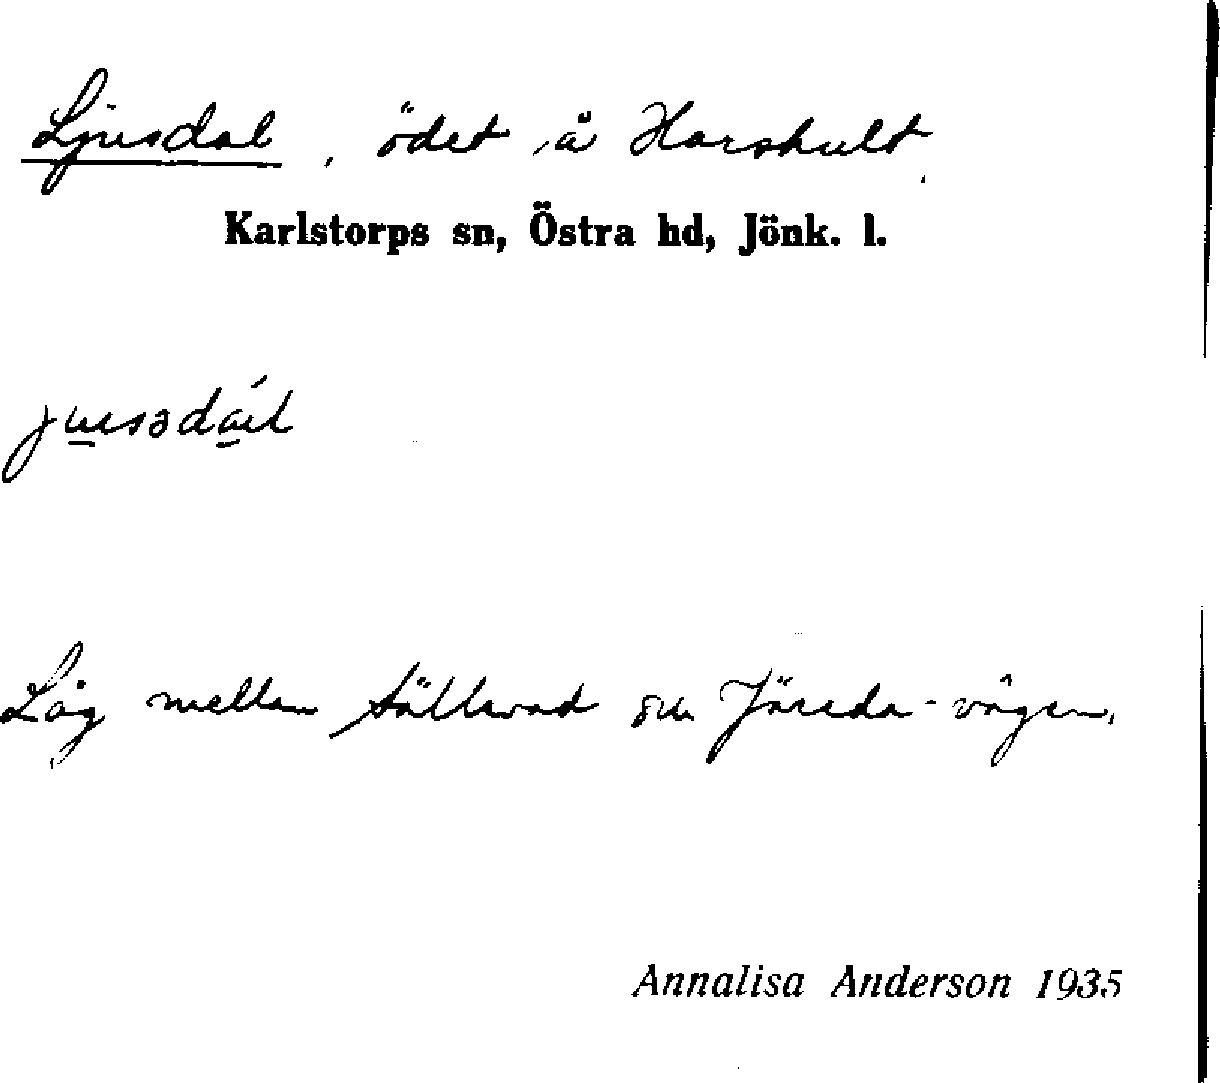 Ljusdal, ödet å Harshult
Karlstorps sn, Östra hd, Jönk. l.
Låg mellan Sällevad o. Järeda-vägen.
Annalisa Anderson 1935